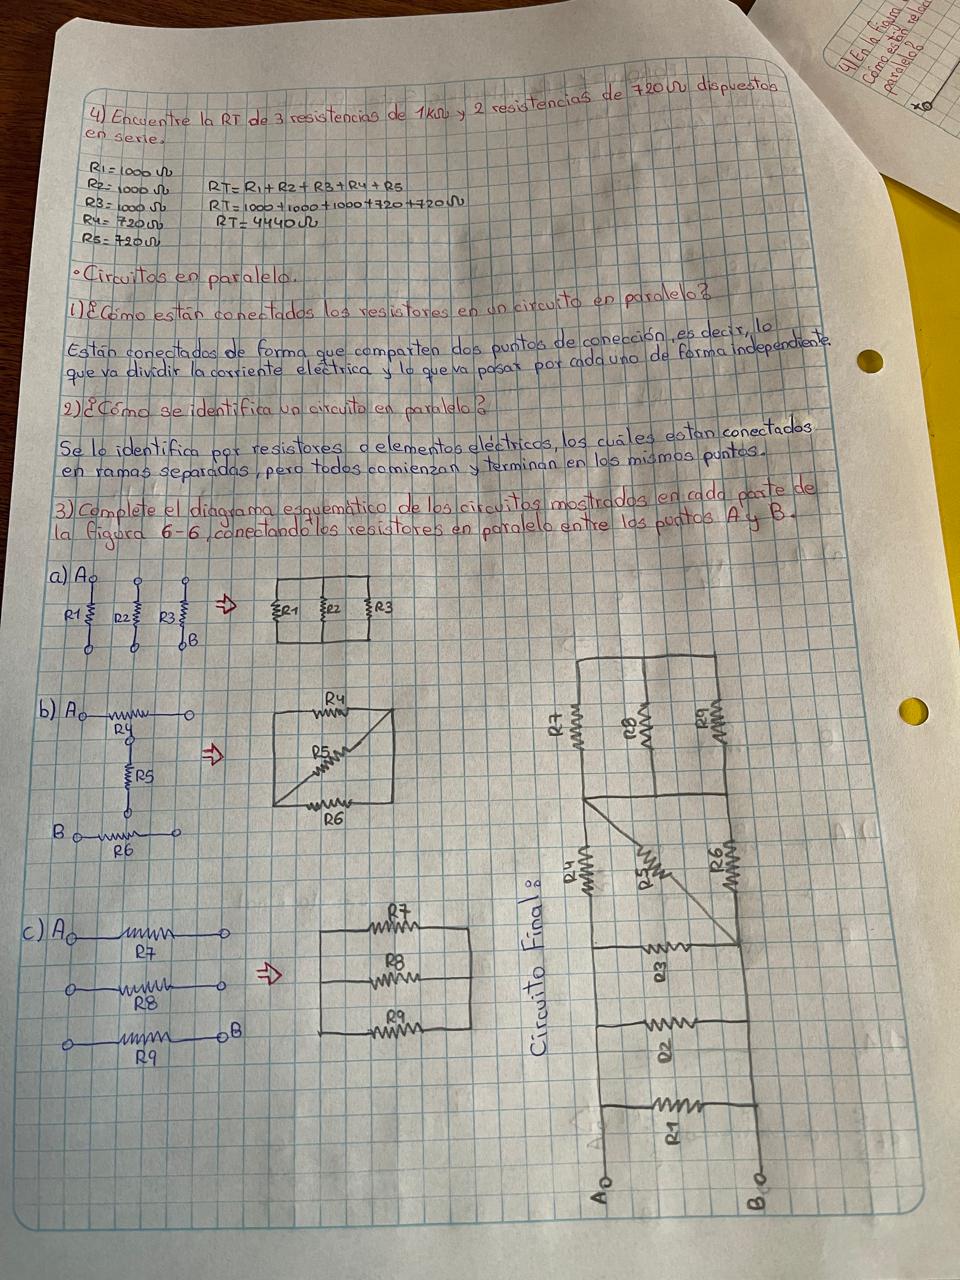 4) Encuentre la RT de 3 resistencias de 1KΩ y 2 resistencias de 720Ω dispuestos
en serie.
R1=1000Ω
R2=1000Ω
R3=1000Ω
R4=720Ω
R5=720Ω
RT=R1+R2+R3+R4+R5
RT=1000+1000+1000+720+720Ω
RT=4440Ω
•Circuitos en paralelo.
1)¿Cómo están conectados los resistores en un circuito en paralelo?
Están conectados de forma que comparten dos puntos de conección, es decir, lo
que va dividir la corriente eléctrica y lo que va pasar por cada uno de forma independiente.
2)¿Cómo se identifica un circuito en paralelo?
Se lo identifica por resistores o elementos eléctricos, los cuáles están conectados
en ramas separadas, pero todos comienzan y terminan en los mismos puntos.
3) Complete el diagrama esquemático de los circuitos mostrados en cada parte de
la figura 6-6, conectando los resistores en paralelo entre los puntos A y B.
a) A
R1 R2 R3 B
⇒
R1 R2 R3
b) A
R4
R5
B
R6
⇒
R4
R5
R6
c) A
R7
R8
R9
B
⇒
R7
R8
R9
Circuito Final:
R7 R8 R9
R4 R5 R6
R3
R2
R1
A
B
4) En la figura
Cómo están relac
paralelo?